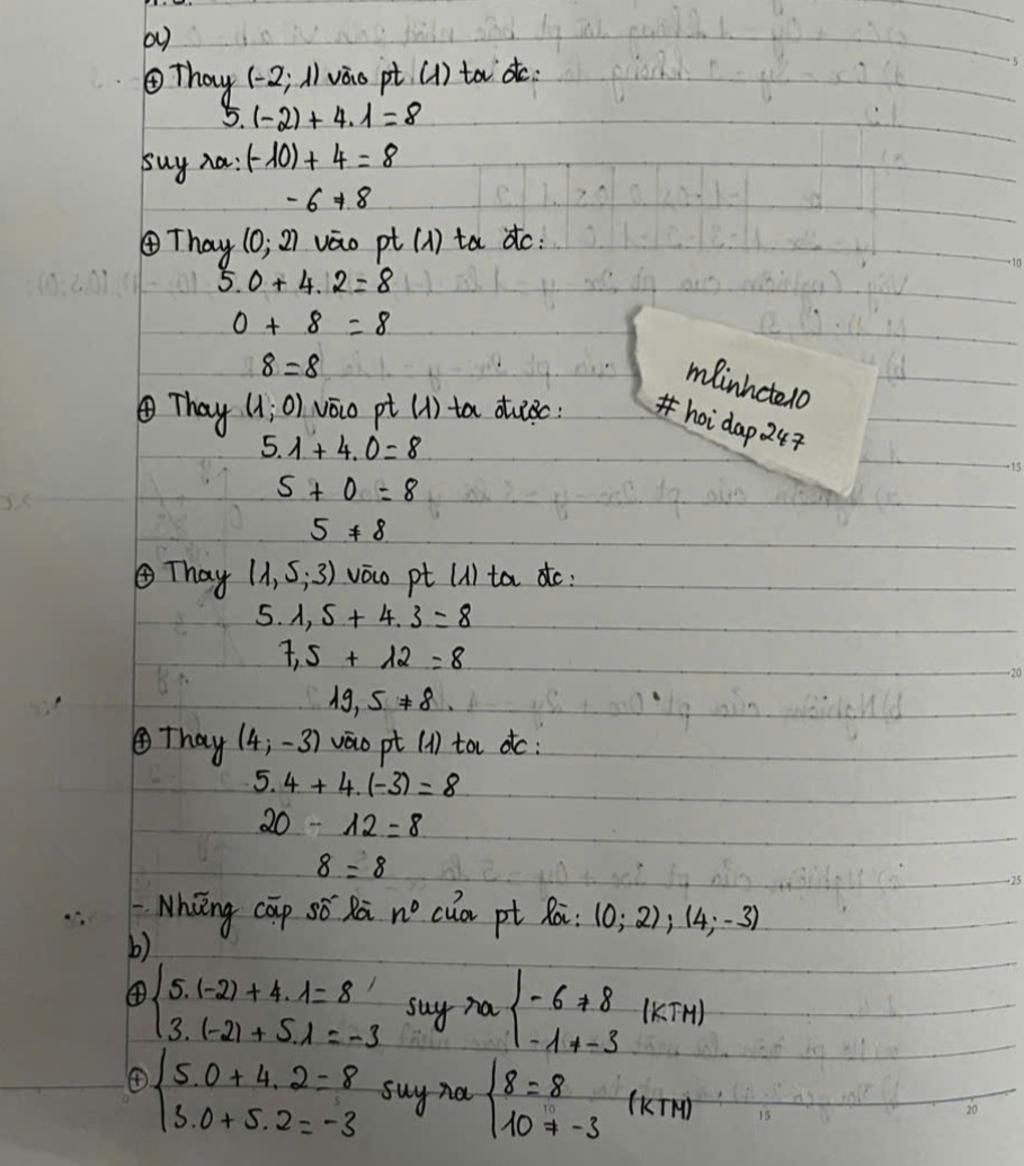 a)
⊕ Thay (-2; 1) vào pt (1) ta đc:
5.(-2) + 4.1 = 8
suy ra: (-10) + 4 = 8
-6 ≠ 8
⊕ Thay (0; 2) vào pt (1) ta đc:
5.0 + 4.2 = 8
0 + 8 = 8
8 = 8
⊕ Thay (1; 0) vào pt (1) ta được:
5.1 + 4.0 = 8
5 + 0 = 8
5 ≠ 8
⊕ Thay (1,5; 3) vào pt (1) ta đc:
5.1,5 + 4.3 = 8
7,5 + 12 = 8
19,5 ≠ 8.
⊕ Thay (4; -3) vào pt (1) ta đc:
5.4 + 4.(-3) = 8
20 - 12 = 8
8 = 8
- Những cặp số là nº của pt là: (0; 2); (4; -3)
b)
⊕ { 5.(-2) + 4.1 = 8 suy ra { -6 ≠ 8 (KTM)
3.(-2) + 5.1 = -3 -1 ≠ -3
⊕ { 5.0 + 4.2 = 8 suy ra { 8 = 8 (KTM)
3.0 + 5.2 = -3 10 ≠ -3
mlinhcte10
# hoidap247